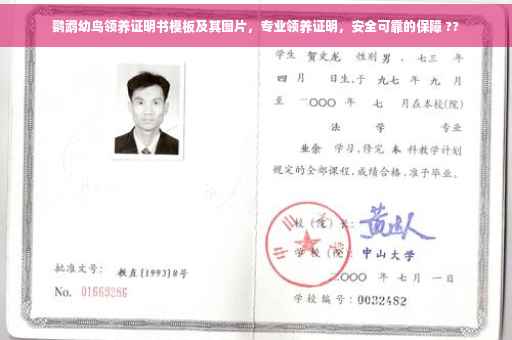 鹦鹉幼鸟领养证明书模板及其图片，专业领养证明，安全可靠的保障 ??
学生 贺文龙 性别 男 、七三 年
四 月 日生,于 九七 年 九 月
至 二〇〇〇 年 七 月在本校(院)
法 学 专业
业余 学习,修完 本 科教学计划
规定的全部课程,成绩合格,准予毕业。
校(院)长:
学校(院): 中山大学
二〇〇〇 年 七 月 一 日
学校编号: 0032482
批准文号: 教直[1993]8号
No. 01669286